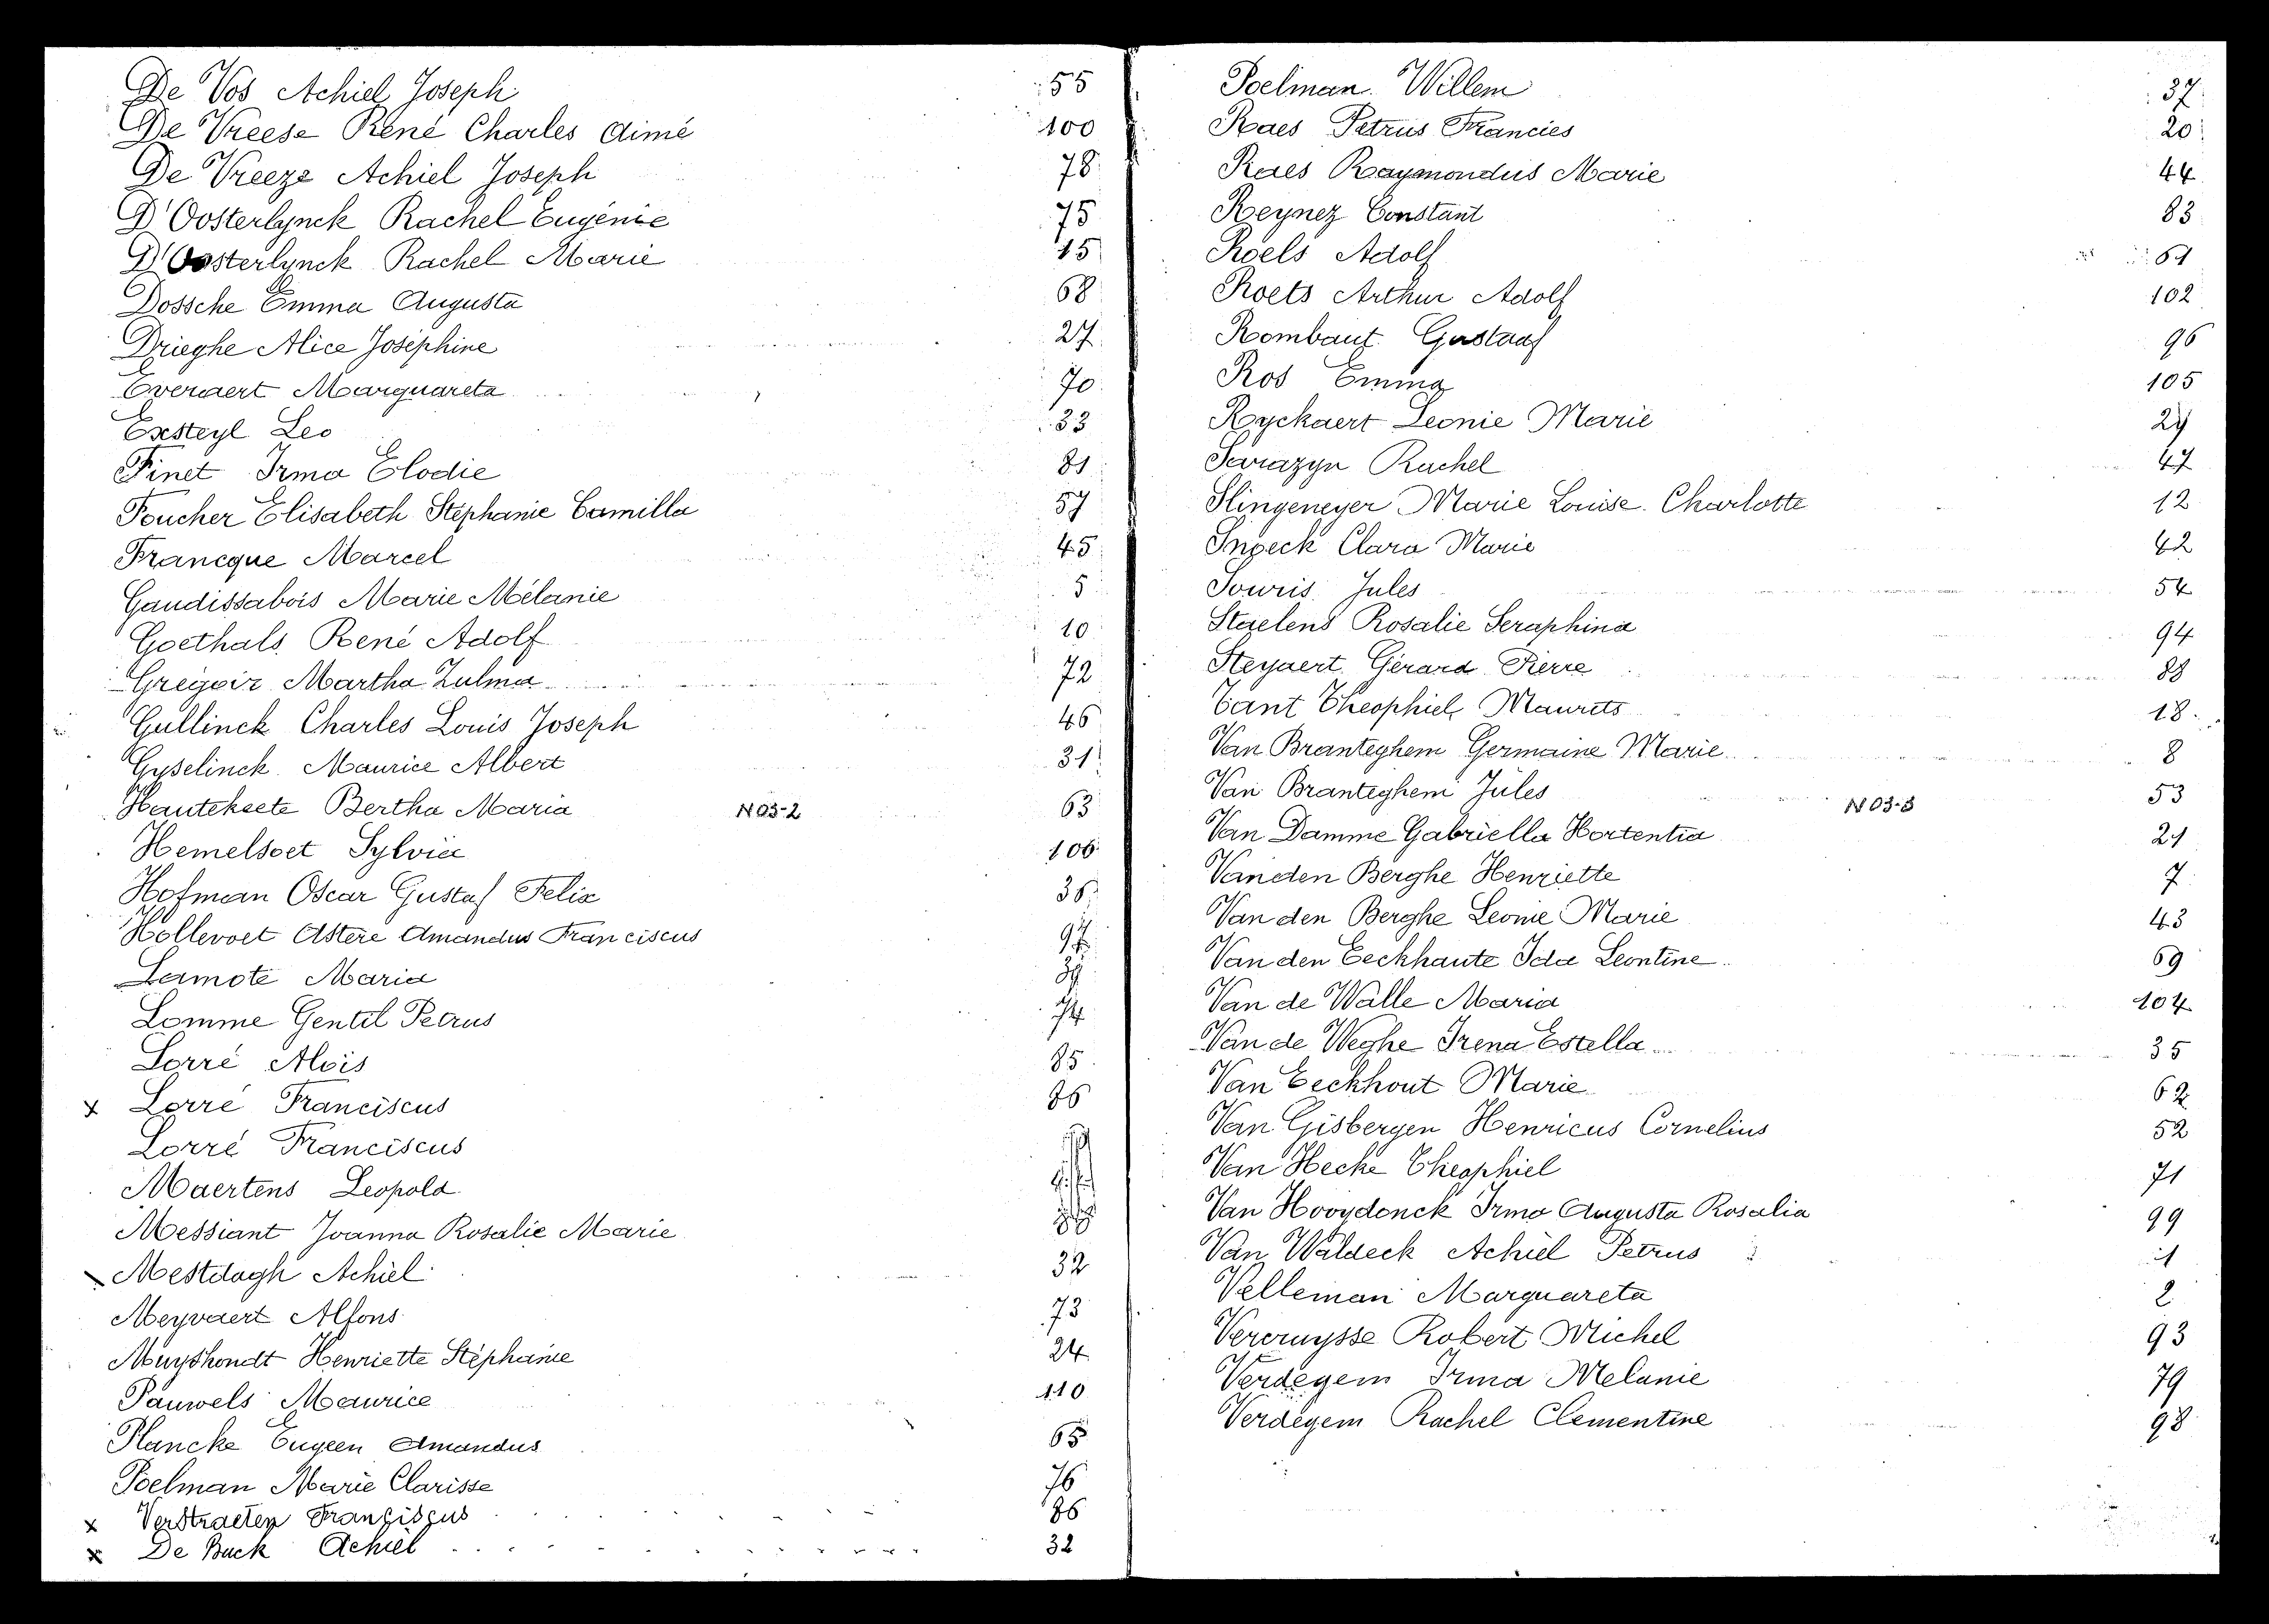 De Vos Achiel Joseph 55
De Vreese René Charles Aimé 100
De Vreeze Achiel Joseph 78
D'Oosterlynck Rachel Eugénie 75
D'Oosterlynck Rachel Marie 15
Dossche Emma Augusta 68
Drieghe Alice Joséphine 27
Everaert Marguareta 70
Exsteyl Leo 33
Finet Irma Elodie 81
Foucher Elisabeth Stéphanie Camilla 57
Francque Marcel 45
Gaudissabois Marie Mélanie 5
Goethals René Adolf 10
Grégoir Martha Zulma 72
Gullinck Charles Louis Joseph 46
Gyselinck Maurice Albert 31
Hautekeete Bertha Maria N03-2 63
Hemelsoet Sylvia 106
Hofman Oscar Gustaf Felix 36
Hollevoet Astère Amandus Franciscus 97
Lamote Maria 39
Lomme Gentil Petrus 74
Lorré Aloïs 85
x Lorré Franciscus 86
Lorré Franciscus
Maertens Leopold
Messiant Joanna Rosalie Marie
Mestdagh Achiel 32
Meyvaert Alfons 73
Muyshondt Henriette Stéphanie 24
Pauwels Maurice 110
Plancke Eugeen Amandus 65
Poelman Marie Clarisse 76
x Verstraeten Franciscus 86
x De Buck Achiel 32
Poelman Willem 37
Raes Petrus Francies 20
Raes Raymondus Marie 44
Reynez Constant 83
Roels Adolf 61
Roets Arthur Adolf 102
Rombaut Gustaaf 96
Ros Emma 105
Ryckaert Leonie Marie 29
Sarazyn Rachel 47
Slingeneyer Marie Louise Charlotte 12
Snoeck Clara Marie 42
Souris Jules 54
Staelens Rosalie Seraphina 94
Steyaert Gérard Pierre 88
Tant Theophiel Maurits 18
Van Branteghem Germaine Marie 8
Van Branteghem Jules N03-3 53
Van Damme Gabriella Hortentia 21
Van den Berghe Henriette 7
Van den Berghe Leonie Marie 43
Van den Eeckhaute Ida Leontine 69
Van de Walle Maria 104
Van de Weghe Irena Estella 35
Van Eeckhout Marie 62
Van Gisbergen Henricus Cornelius 52
Van Hecke Theophiel 71
Van Hooydonck Irma Augusta Rosalia 99
Van Waldeck Achiel Petrus 1
Velleman Marguareta 2
Vercruysse Robert Michel 93
Verdegem Irma Melanie 79
Verdegem Rachel Clementine 98